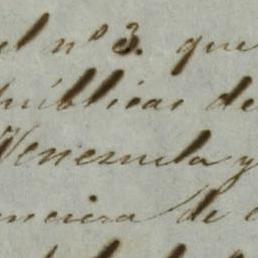 el nº 3. que
públicas de
Venezuela y
nciera de